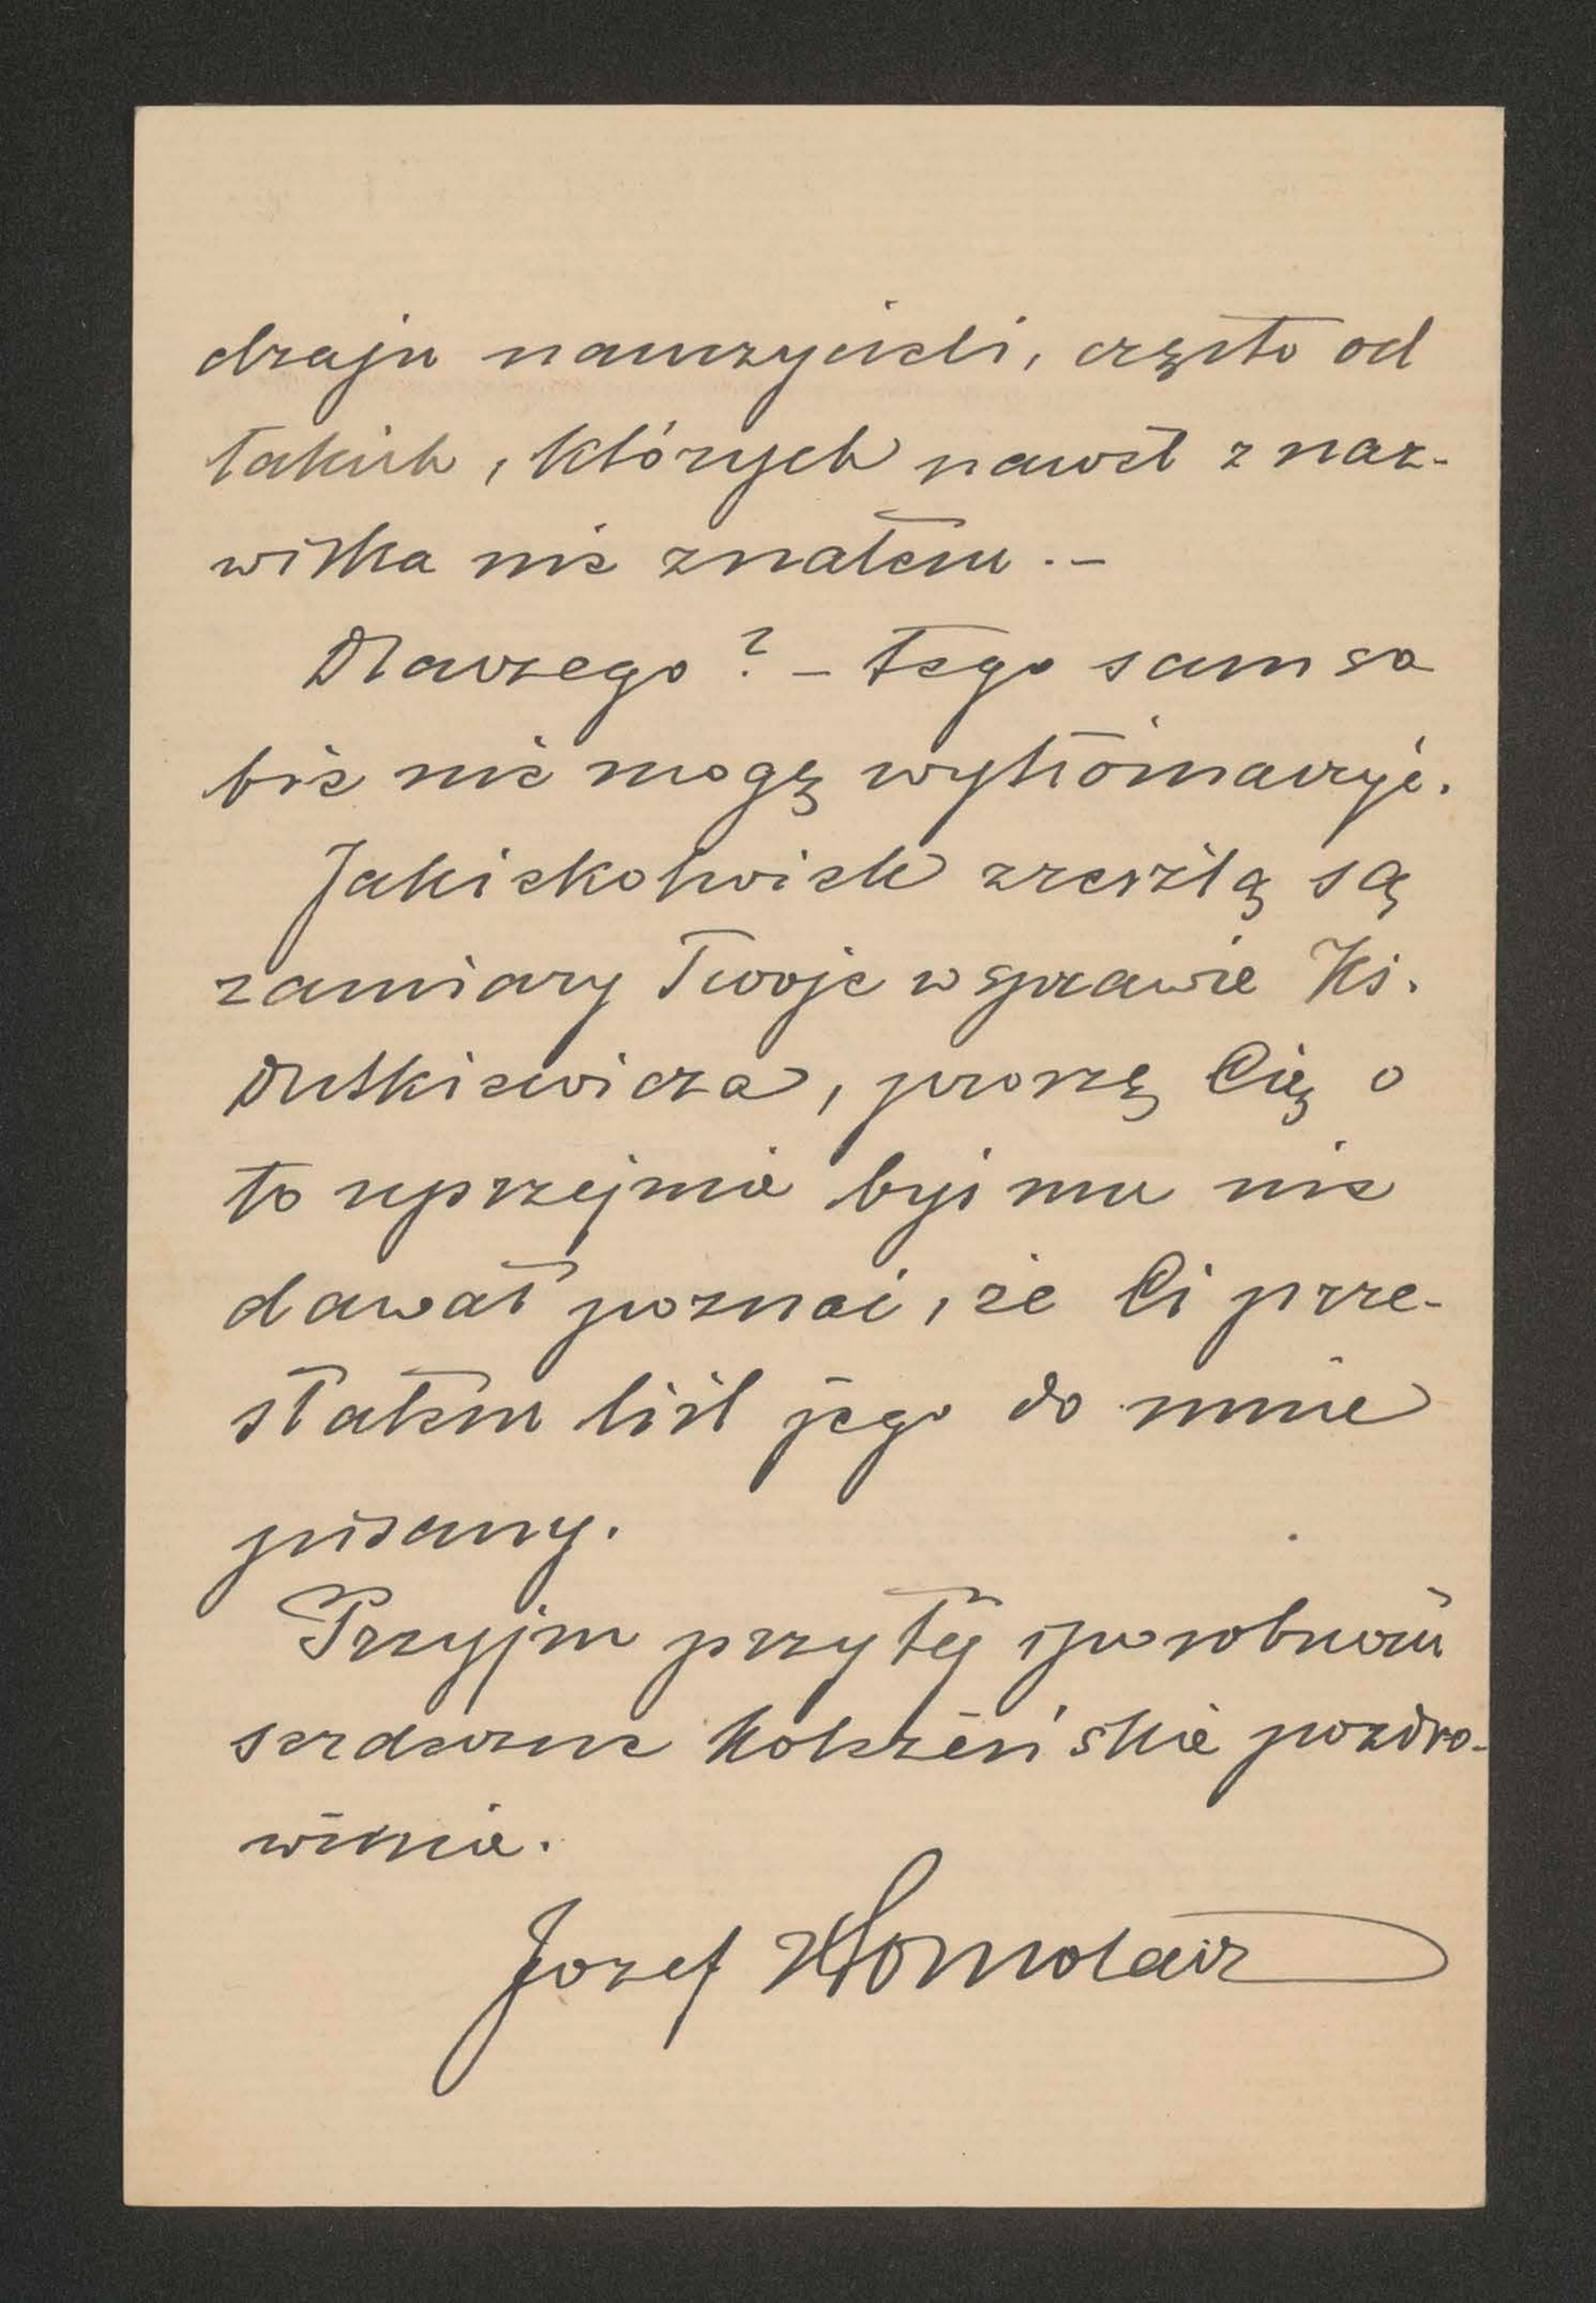 dzaju nauczycieli, często od
takich, których nawet z naz-
wiska nie znałem. –
Dlaczego? – tego sam so
bie nie mogę wytłómaczyć.
Jakiekolwiek zresztą są
zamiary Twoje w sprawie Ks.
Dutkiewicza, proszę Cię o
to uprzejmie byś mu nie
dawał poznać, że Ci prze-
słałem list jego do mnie
pisany.
Przyjm przy tej sposobności
serdeczne koleżeńskie pozdro-
wienie.
Jozef